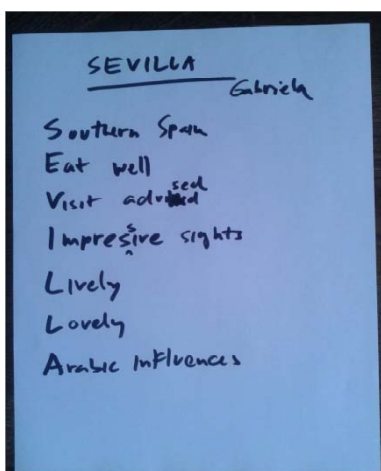 SEVILLA
Gabriela
Southern Spain
Eat well
Visit advised
Impressive sights
Lively
Lovely
Arabic Influences